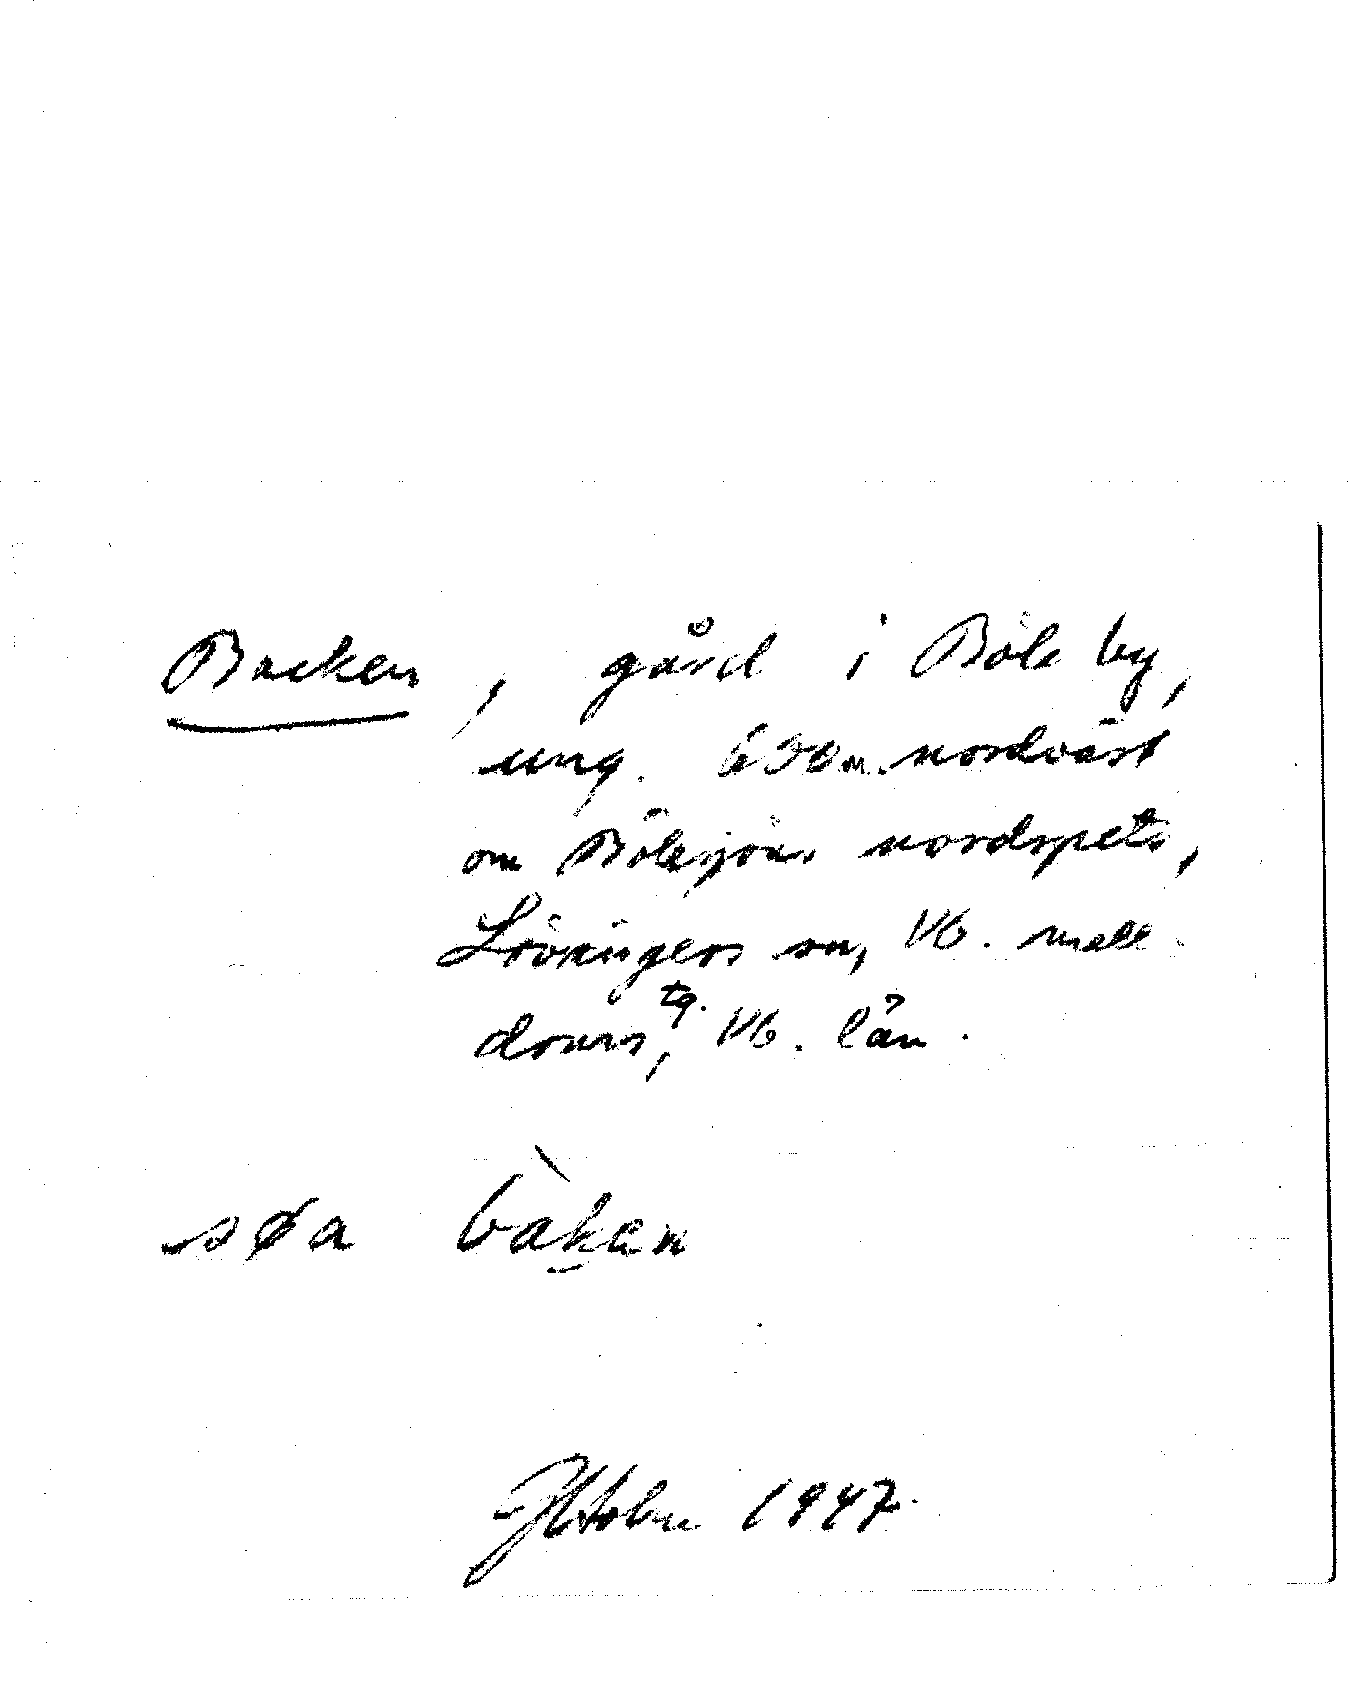 Backen, gård i Böle by,
ung. 650 m. nordväst
om Bölesjöns nordspets,
Lövångers sn, Vb. mell.
doms tg., Vb. län.
søa bàken
1947.